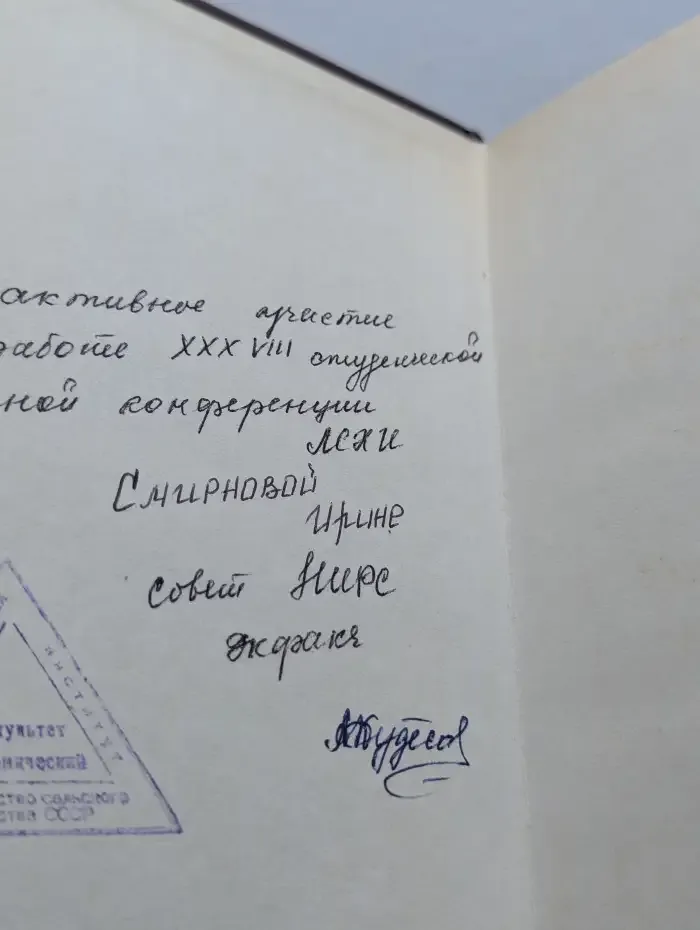 активное участие
работе XXXVIII студенческой
ной конференции
ЛСХИ
Смирновой
Ирине
совет НИРС
институт
культет
мический
ство сельского
ства СССР